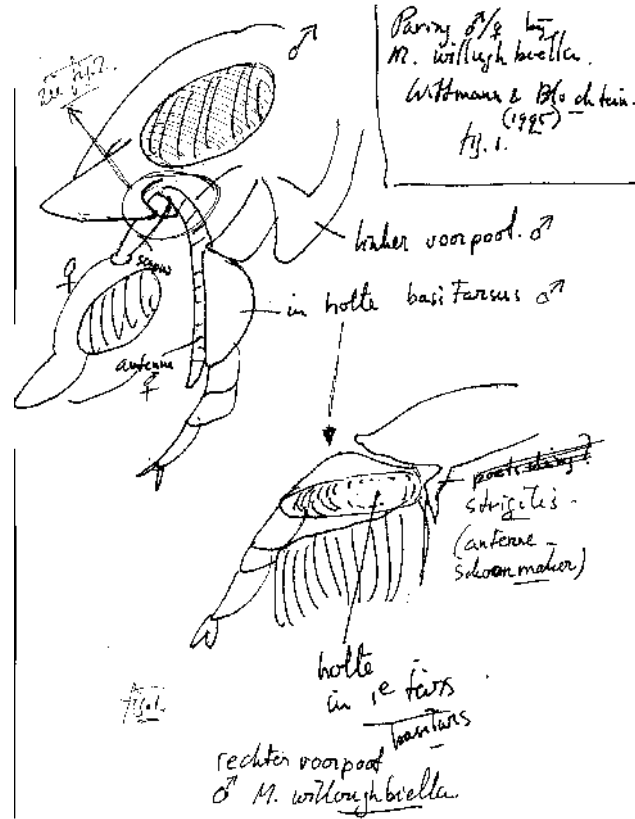 Paring ♂/♀ bij
M. willughbiella.
Wittmann & Blochtein.
(1995)
fig. 1.
zie fig. 2.
♂
linker voorpoot. ♂
♀
scapus
in holte basitarsus ♂
antenne
♀
strigilis -
(antenne -
schoonmaker)
holte
in 1e tars
basitars
fig. 1.
rechter voorpoot
♂ M. willoughbiella.